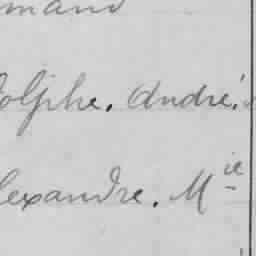 mand
olphe. André.
lexandre. M^ie